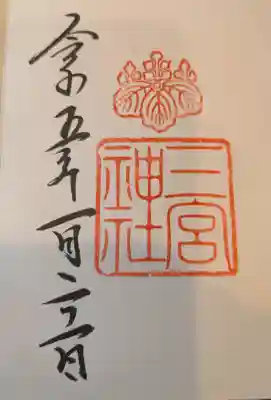 二宮
神社
令和五年一月二十一日